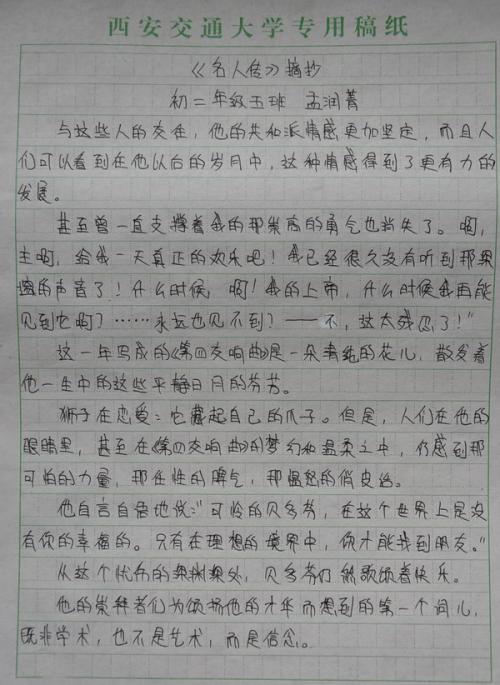 西安交通大学专用稿纸
《名人传》摘抄
初二年级五班 孟润菁
与这些人的交往，他的共和派情感更加坚定，而且人
们可以看到在他以后的岁月中，这种情感得到了更有力的
发展。
甚至曾一直支撑着我的那崇高的勇气也消失了。啊，
主啊，给我一天真正的欢乐吧！我已经很久没有听到那深
邃的声音了！什么时候，啊！我的上帝，什么时候我再能
见到它啊？……永远也见不到？——不，这太残忍了！”
这一年写成的《第四交响曲》是一朵清纯的花儿，散发着
他一生中的这些平静日月的芬芳。
狮子在恋爱：它藏起自己的爪子。但是，人们在他的
眼睛里，甚至在《第四交响曲》的梦幻和温柔之中，仍感到那
可怕的力量，那任性的脾气，那愠怒的俏皮话。
他自言自语地说：“可怜的贝多芬，在这个世界上是没
有你的幸福的。只有在理想的境界中，你才能找到朋友。”
从这个忧伤的深渊深处，贝多芬们 歌颂着快乐。
他的崇拜者们为颂扬他的才华而想到的第一个词儿，
既非学术，也不是艺术，而是信念。